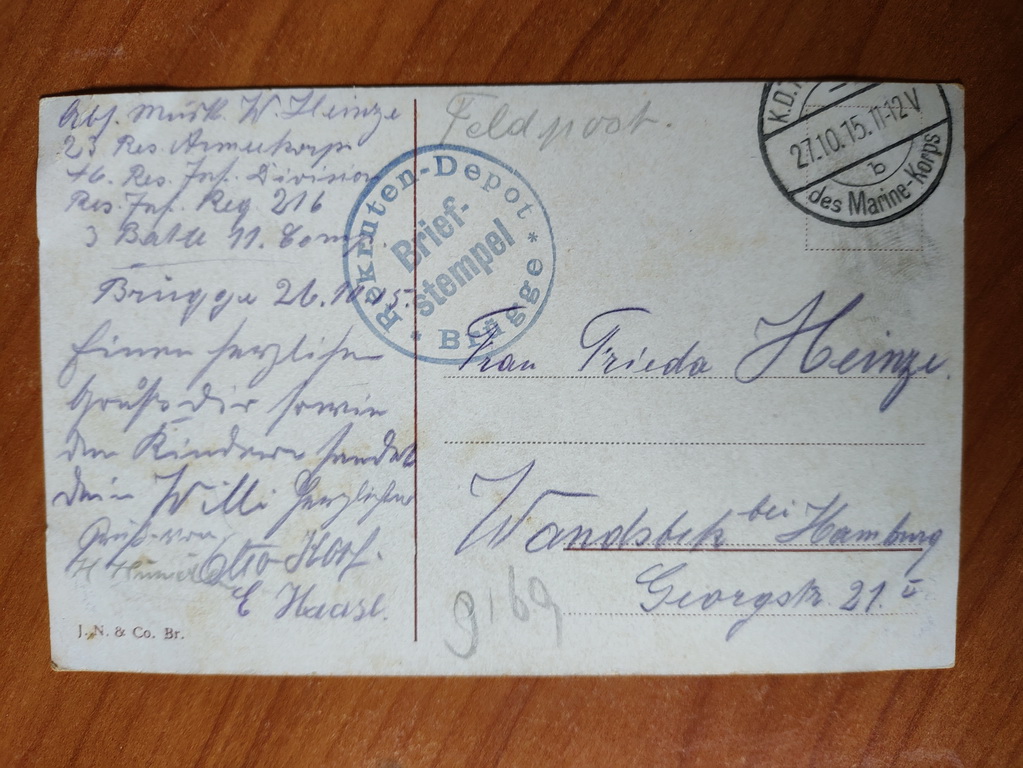 Abs. Musk. W. Heinze
23 Res. Armeekorps
46. Res. Inf. Division
Res. Inf. Reg 216
3 Batll 11. Comp.
Brügge 26.10.15.
Einen herzlichen
Gruß Dir sowie
den Kindern sendet
Dein Willi Herzlichen
Gruß von
Otto
E Haase.
J. N. & Co. Br.
Feldpost.
Rekruten-Depot
Brief-
stempel
* Brügge *
K.D.
27.10.15.11-12V
b
des Marine-Korps
Frau Frieda Heinze.
Wandsbek bei Hamburg
Georgstr. 21. I